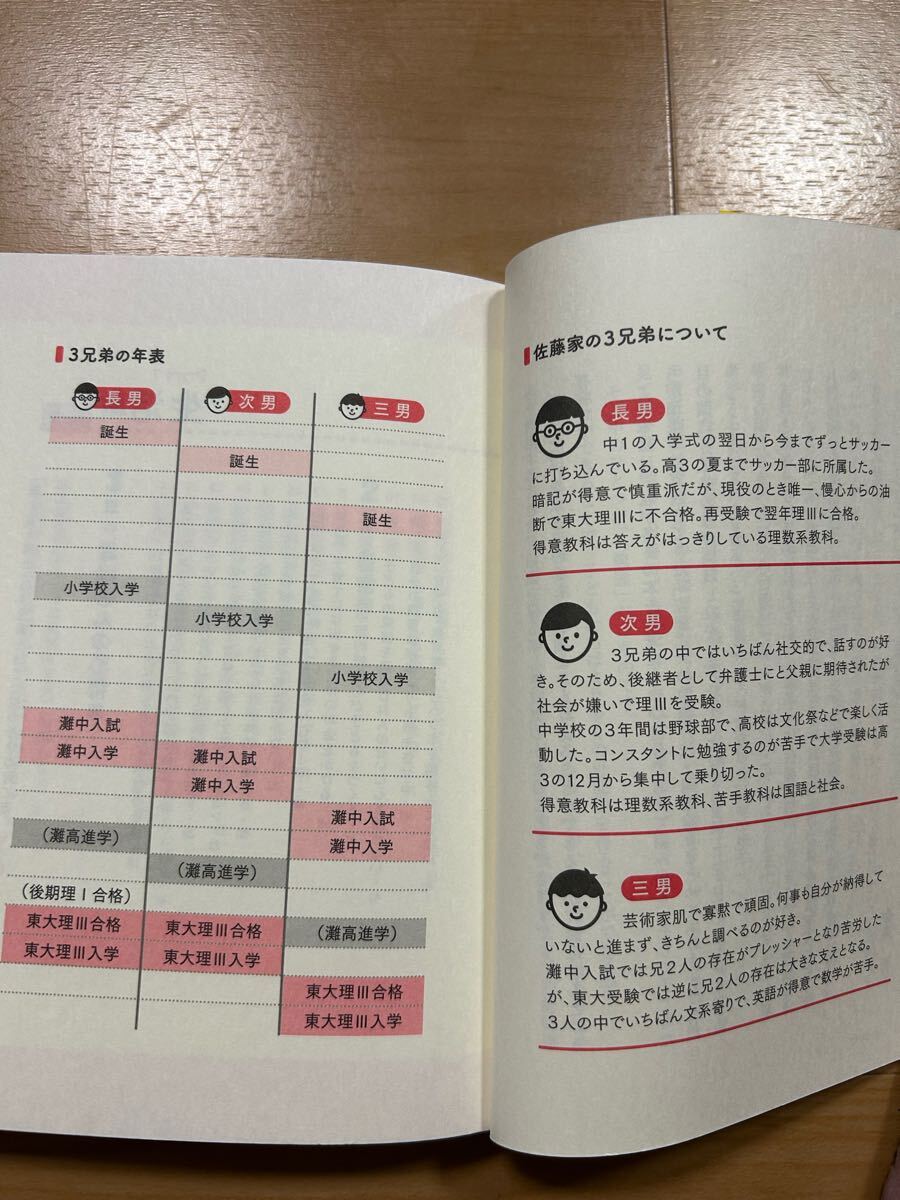 3兄弟の年表
長男 次男 三男
誕生
誕生
誕生
小学校入学
小学校入学
小学校入学
灘中入試
灘中入学 灘中入試
灘中入学
灘中入試
(灘高進学) 灘中入学
(灘高進学)
(後期理Ⅰ合格)
東大理Ⅲ合格 東大理Ⅲ合格 (灘高進学)
東大理Ⅲ入学 東大理Ⅲ入学
東大理Ⅲ合格
東大理Ⅲ入学
佐藤家の3兄弟について
長男
中1の入学式の翌日から今までずっとサッカー
に打ち込んでいる。高3の夏までサッカー部に所属した。
暗記が得意で慎重派だが、現役のとき唯一、慢心からの油
断で東大理Ⅲに不合格。再受験で翌年理Ⅲに合格。
得意教科は答えがはっきりしている理数系教科。
次男
3兄弟の中ではいちばん社交的で、話すのが好
き。そのため、後継者として弁護士にと父親に期待されたが
社会が嫌いで理Ⅲを受験。
中学校の3年間は野球部で、高校は文化祭などで楽しく活
動した。コンスタントに勉強するのが苦手で大学受験は高
3の12月から集中して乗り切った。
得意教科は理数系教科、苦手教科は国語と社会。
三男
芸術家肌で寡黙で頑固。何事も自分が納得して
いないと進まず、きちんと調べるのが好き。
灘中入試では兄2人の存在がプレッシャーとなり苦労した
が、東大受験では逆に兄2人の存在は大きな支えとなる。
3人の中でいちばん文系寄りで、英語が得意で数学が苦手。